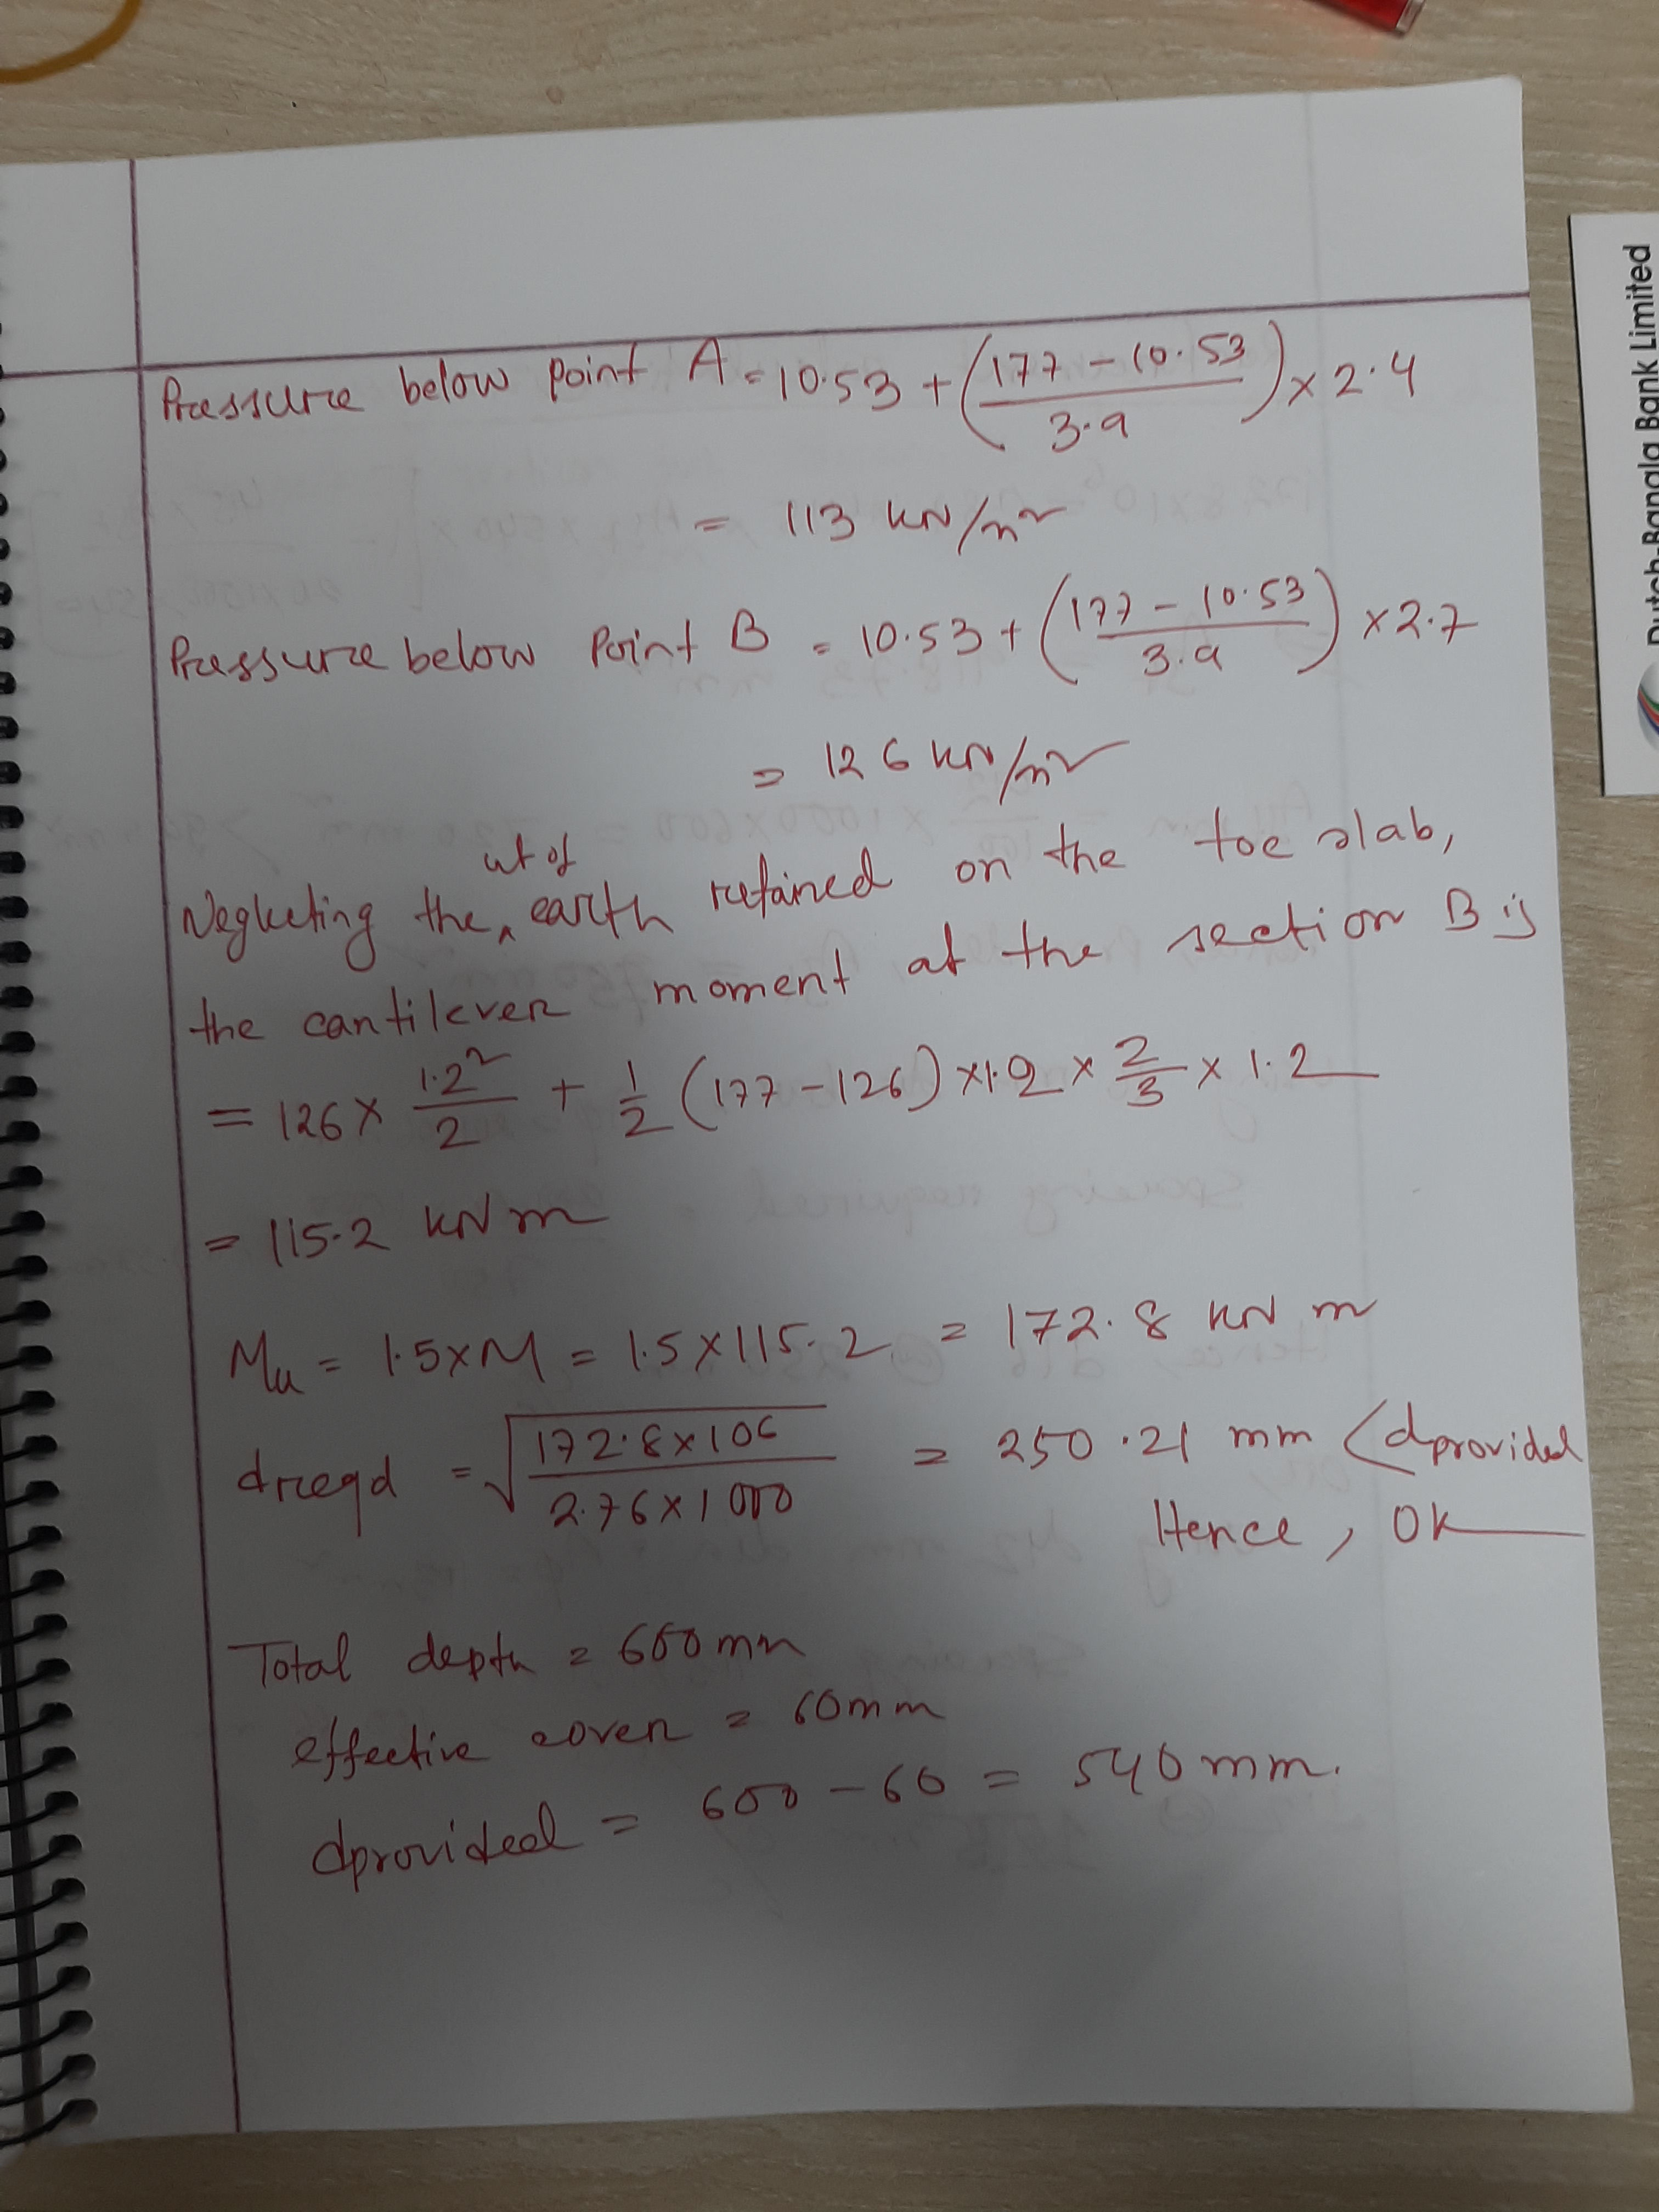 Pressure below point A = 10.53 + (177 - 10.53 / 3.9) × 2.4
= 113 kN/m²
Pressure below Point B = 10.53 + (177 - 10.53 / 3.9) × 2.7
= 126 kN/m²
wt of
Neglecting the ^ earth retained on the toe slab,
the cantilever moment at the section B is
= 126 × 1.2² / 2 + 1/2 (177 - 126) × 1.2 × 2/3 × 1.2
= 115.2 kN m
Mu = 1.5 × M = 1.5 × 115.2 = 172.8 kN m
dreqd = √(172.8 × 10⁶ / 2.76 × 1000) = 250.21 mm < dprovided
Hence, OK
Total depth = 600 mm
effective cover = 60 mm
dprovided = 600 - 60 = 540 mm.
Dutch-Bangla Bank Limited